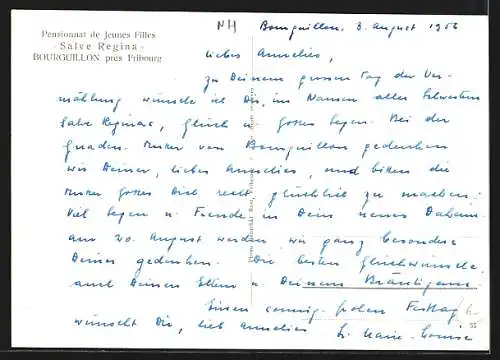 Pensionnat de Jeunes Filles
Salve Regina
BOURGUILLON près Fribourg
NH
Bourguillon, 3. August 1956
Liebes Annelies,
Zu Deinem grossen Tag der Ver-
mählung wünsche ich Dir, im Namen aller Schwestern
Salve Reginas, Glück u. Gottes Segen. Bei der
Gnaden-Mutter von Bourguillon gedenken
wir Deiner, liebes Annelies, und bitten die
Mutter Gottes Dich recht glücklich zu machen.
Viel Segen u. Freude in Dein neues Daheim.
Am 20. August werden wir ganz besonders
Deiner gedenken. Die besten Glückwünsche
auch Deinen Eltern u. Deinem Bräutigam.
Einen sonnig-frohen Festtag
wünscht Dir, lieb Annelies Sr. Marie-Louise